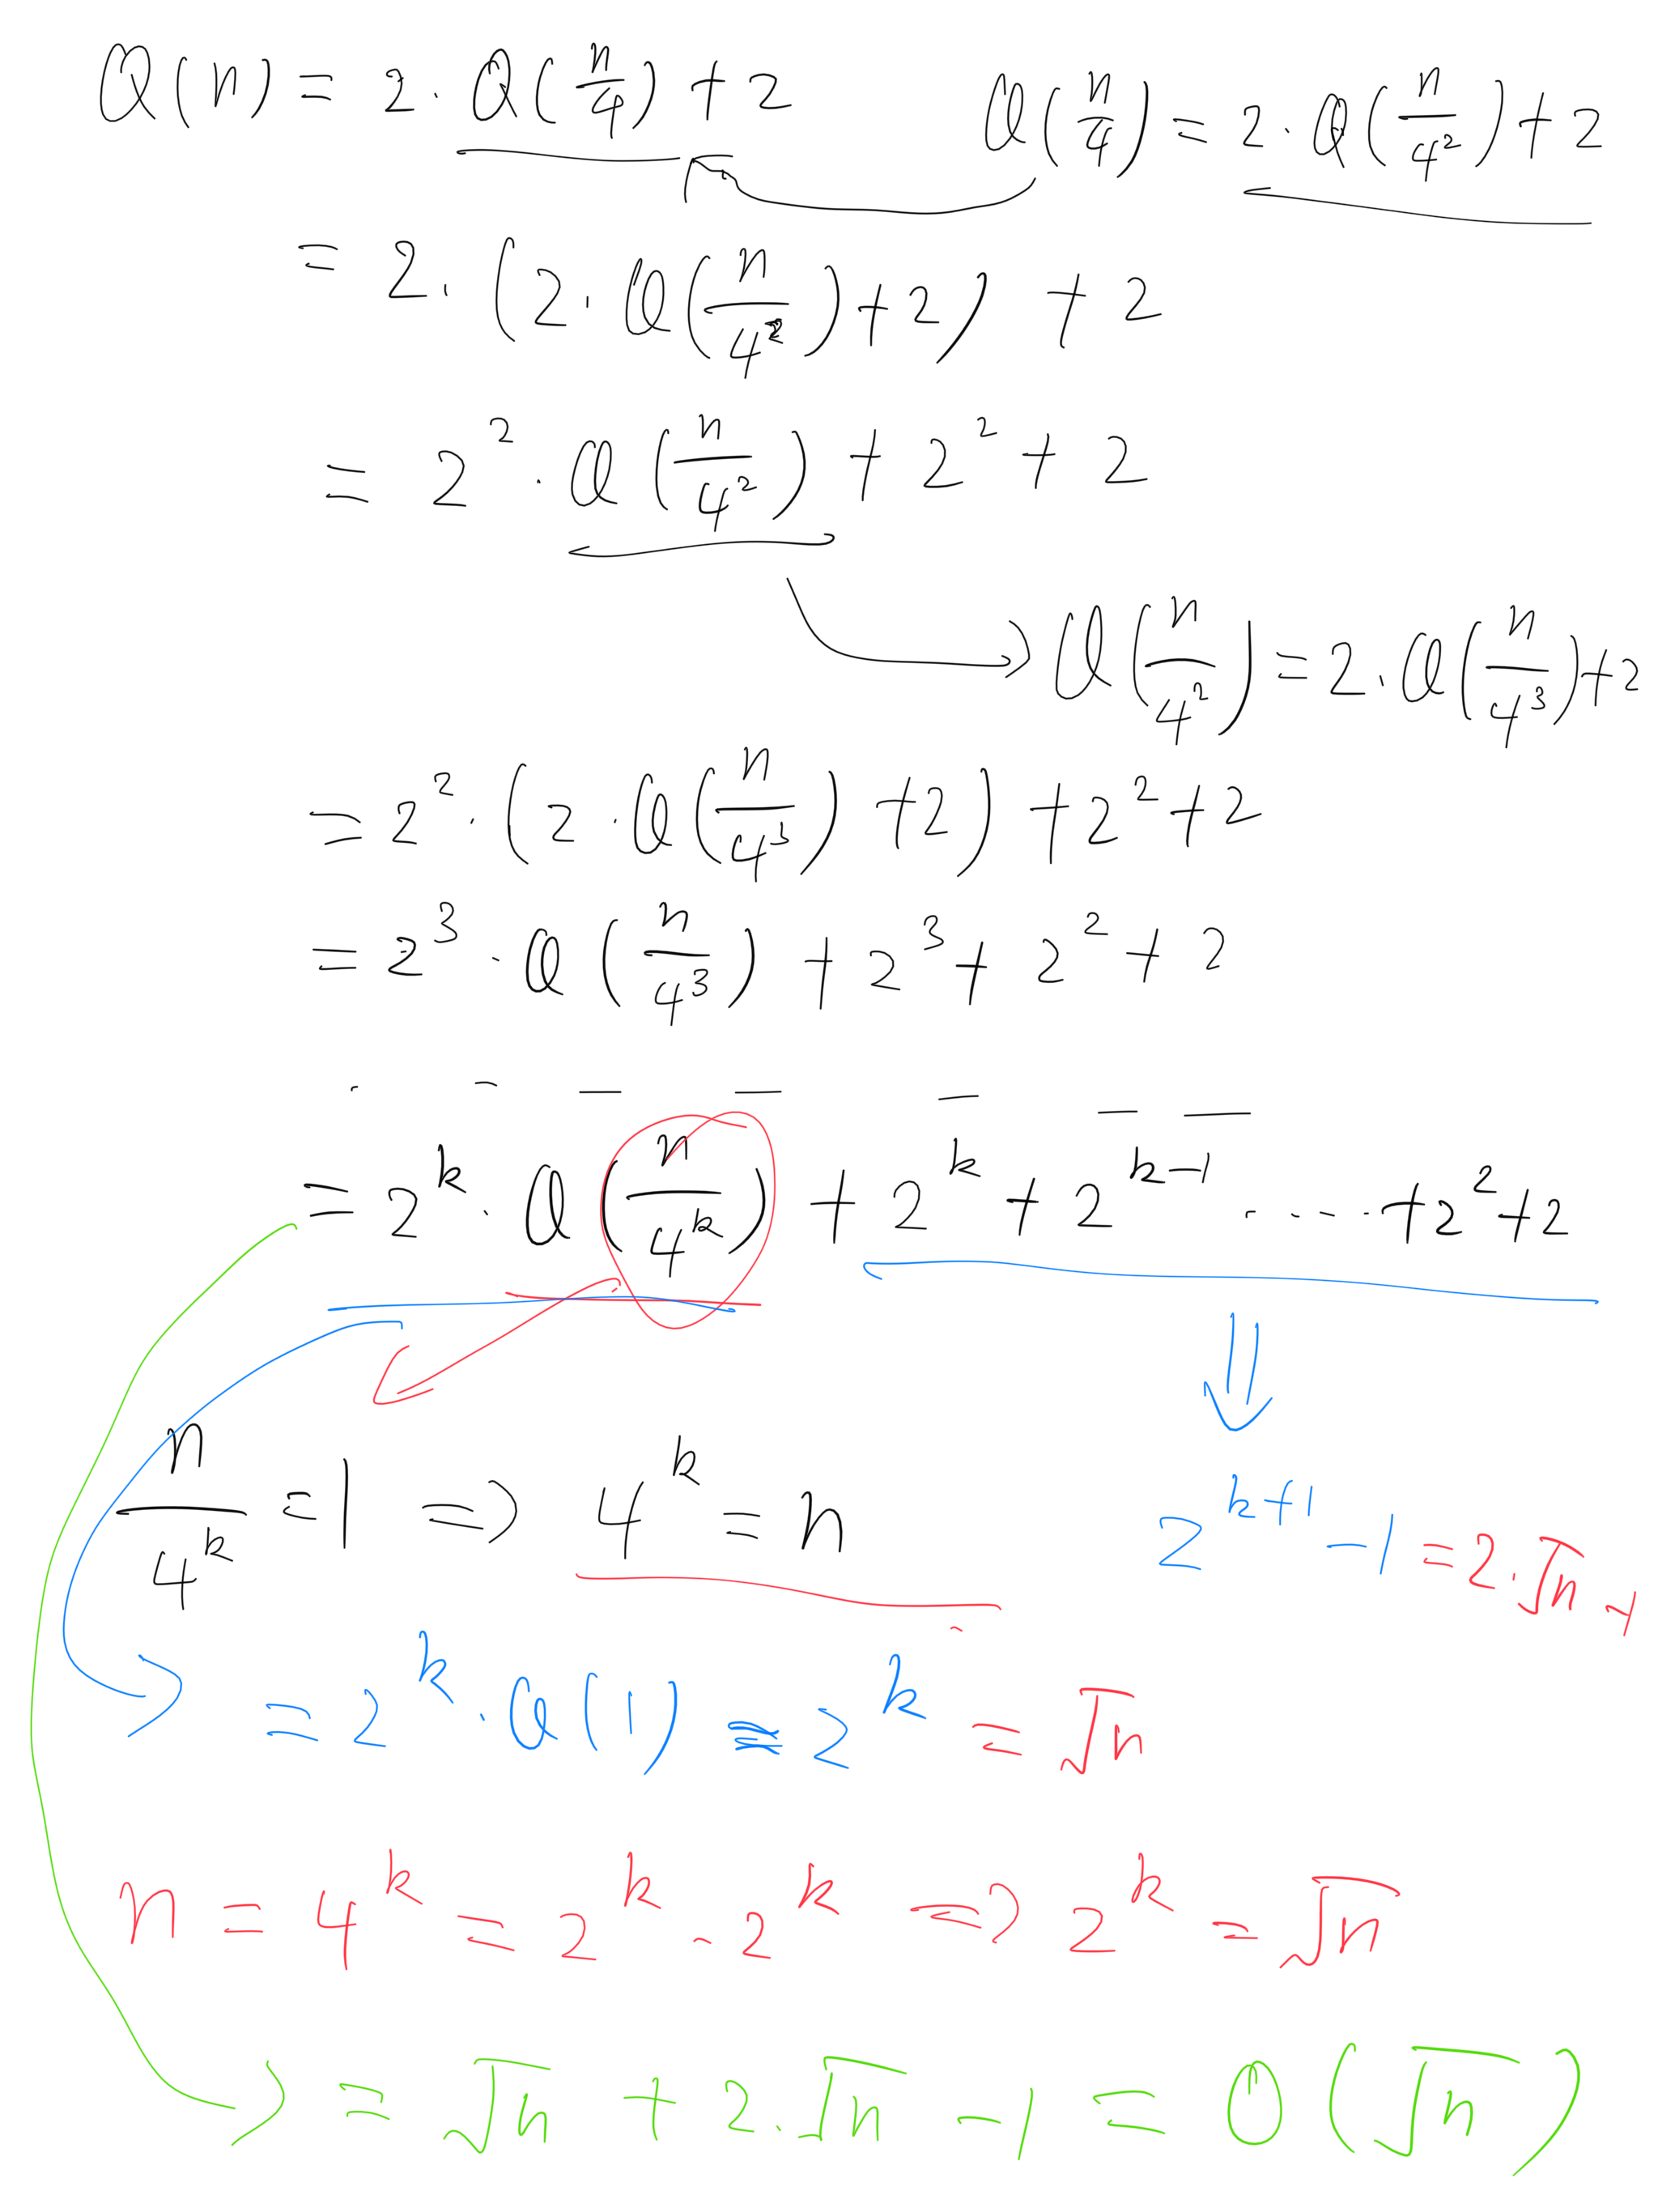 Q(n) = 2·Q(n/4) + 2    Q(n/4) = 2·Q(n/4²) + 2
= 2·(2·Q(n/4²) + 2) + 2
= 2²·Q(n/4²) + 2² + 2
Q(n/4²) = 2·Q(n/4³) + 2
= 2²·(2·Q(n/4³) + 2) + 2² + 2
= 2³·Q(n/4³) + 2³ + 2² + 2
= 2^k·Q(n/4^k) + 2^k + 2^(k-1) ..... + 2² + 2
n/4^k = 1 ⇒ 4^k = n    2^(k+1) - 1 = 2·√n - 1
= 2^k·Q(1) = 2^k = √n
n = 4^k = 2^k · 2^k ⇒ 2^k = √n
= √n + 2·√n - 1 = O(√n)